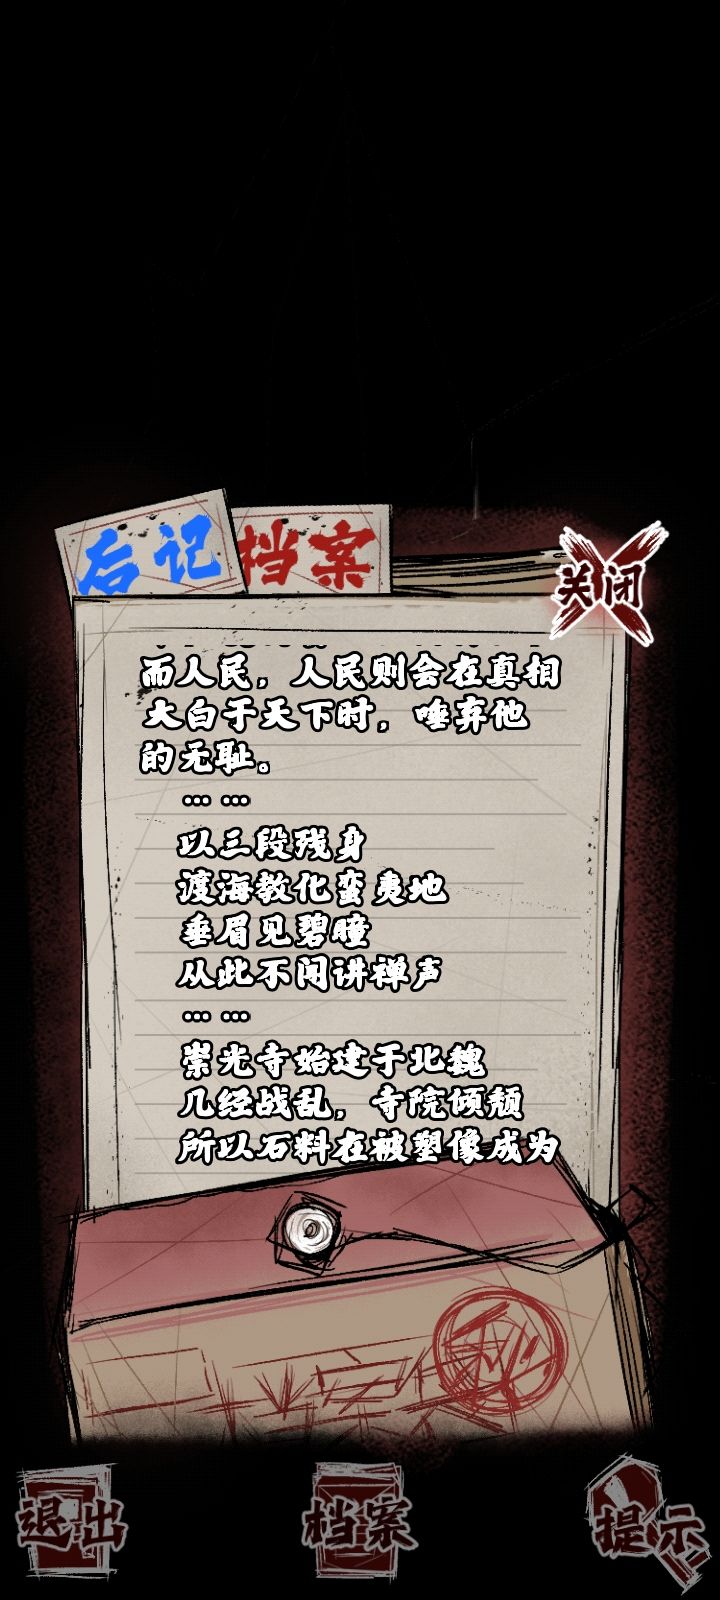 后记
档案
关闭
而人民，人民则会在真相
大白于天下时，唾弃他
的无耻。
……
以三段残身
渡海教化蛮夷地
垂眉见碧瞳
从此不闻讲禅声
……
崇光寺始建于北魏
几经战乱，寺院倾颓
所以石料在被塑像成为
退出
档案
提示